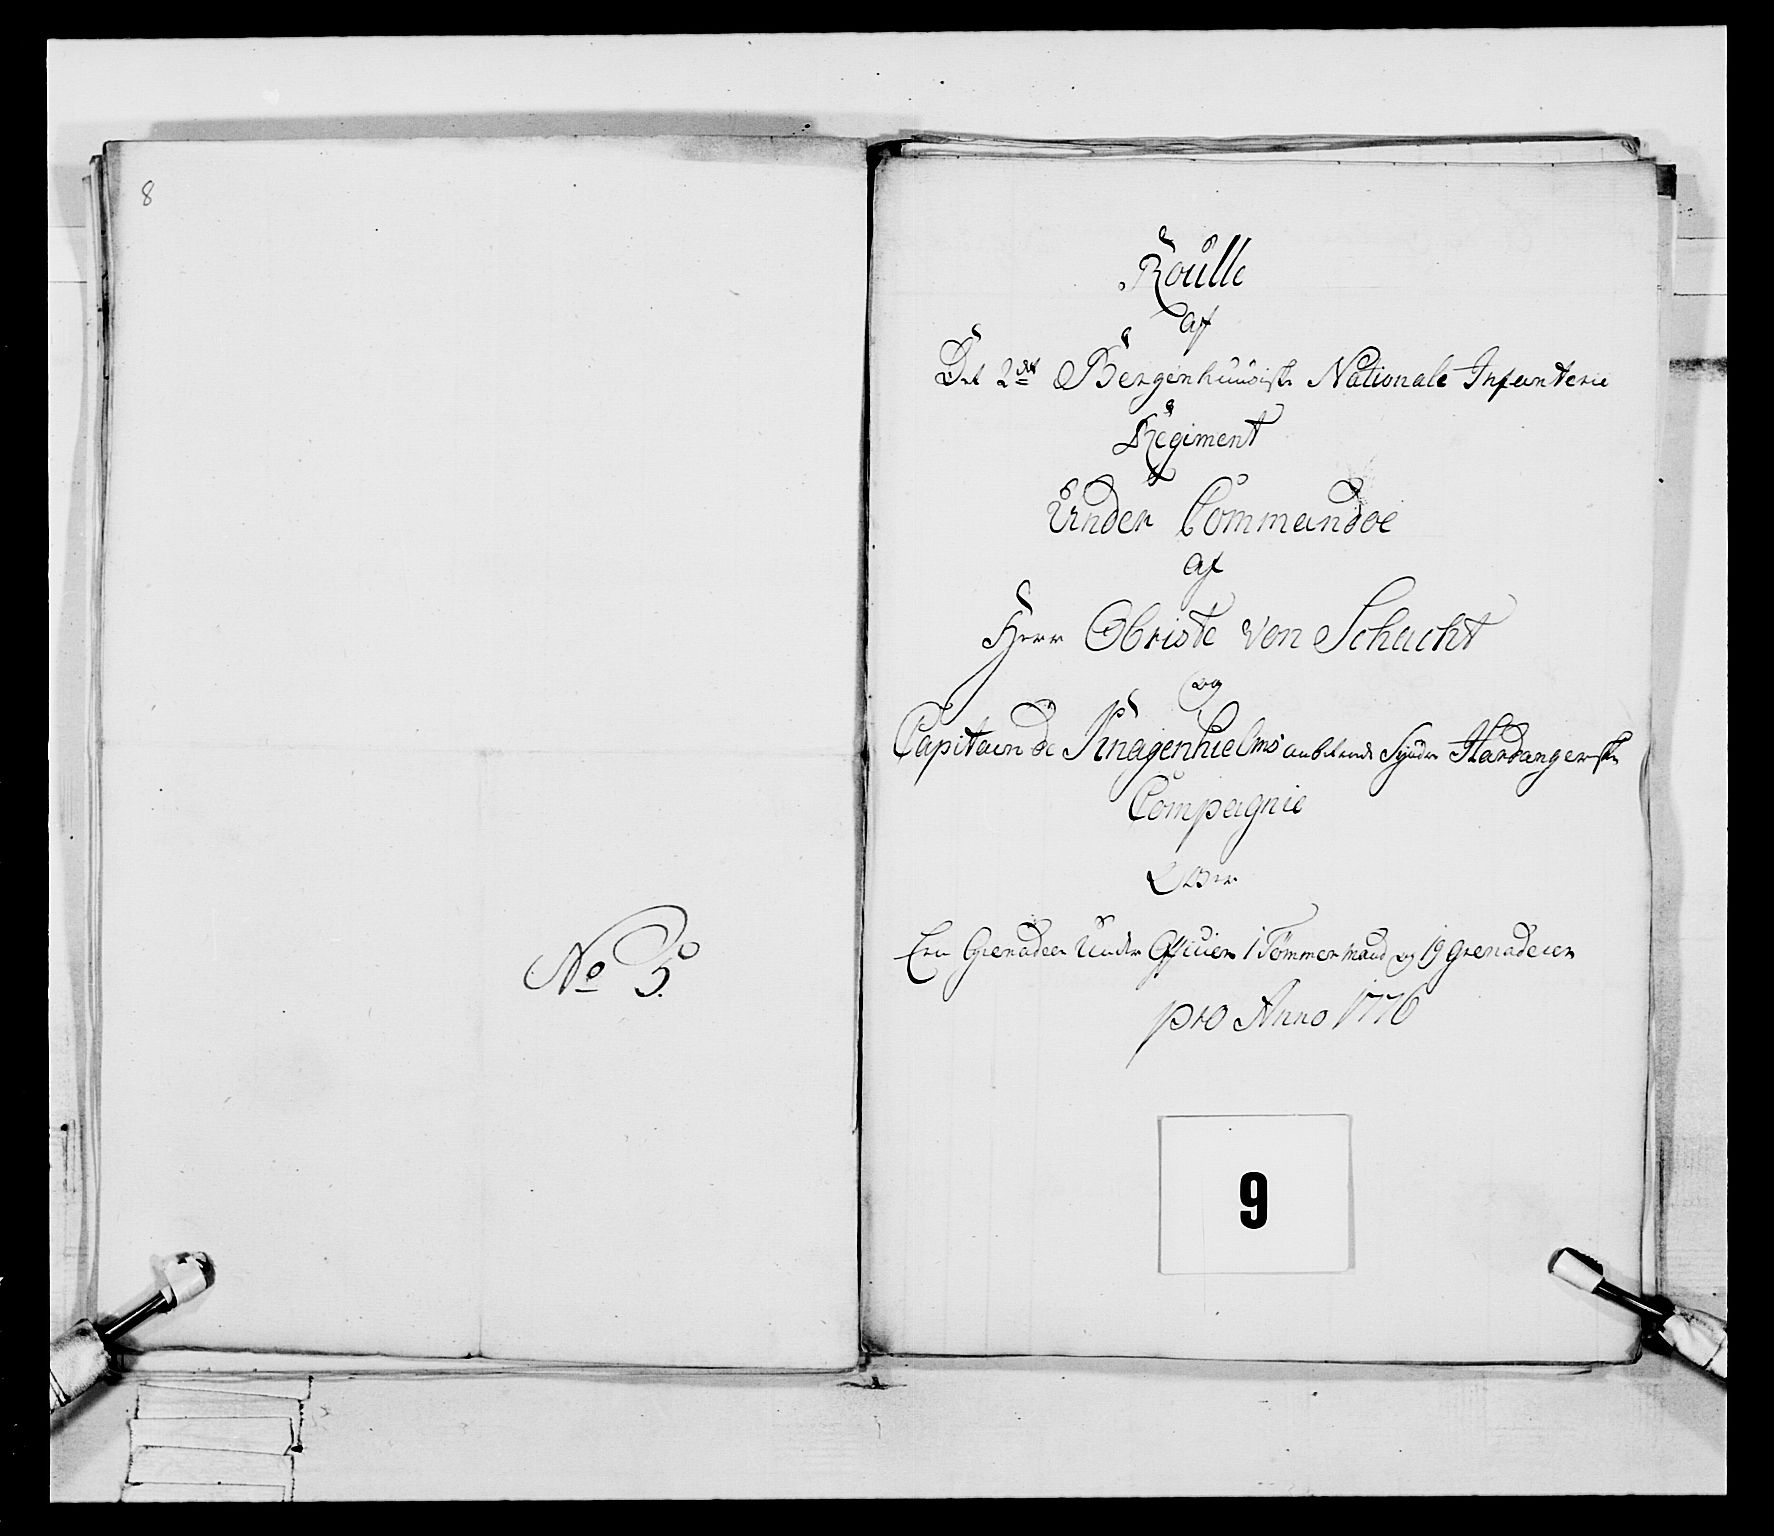 8
No 5.
Roulle
af
Det 2det Bergenhuusiske Nationale Infanterie
Regiment
Under Commandoe
af
Herr Obriste von Schacht
og
Capitain de Knagenhielms anbetroede Syndre Hardangerske
Compagnie
Over
Een Grenadeer Under Officier 1 Tömmermand og 19 Grenadeeer
pro Anno 1776
9